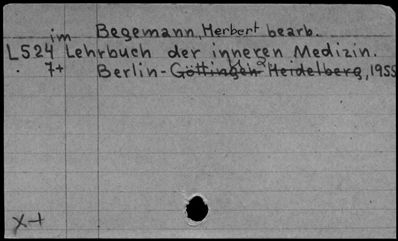 im Begemann, Herbert bearb.
L524 Lehrbuch der inneren Medizin.
7+ Berlin-Göttingen & Heidelberg, 1955
X+